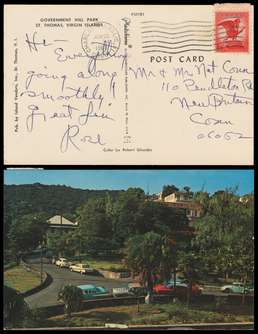 GOVERNMENT HILL PARK
ST. THOMAS, VIRGIN ISLANDS
Hi Everything
going along
smoothly!
Great fun
Rose
Pub. by Island Vendors, Inc. St. Thomas, V. I.
POST CARD
Mr & Mrs Nat Coxn
110 Pendleton Rd
New Britain
Conn
06052
Color by Robert